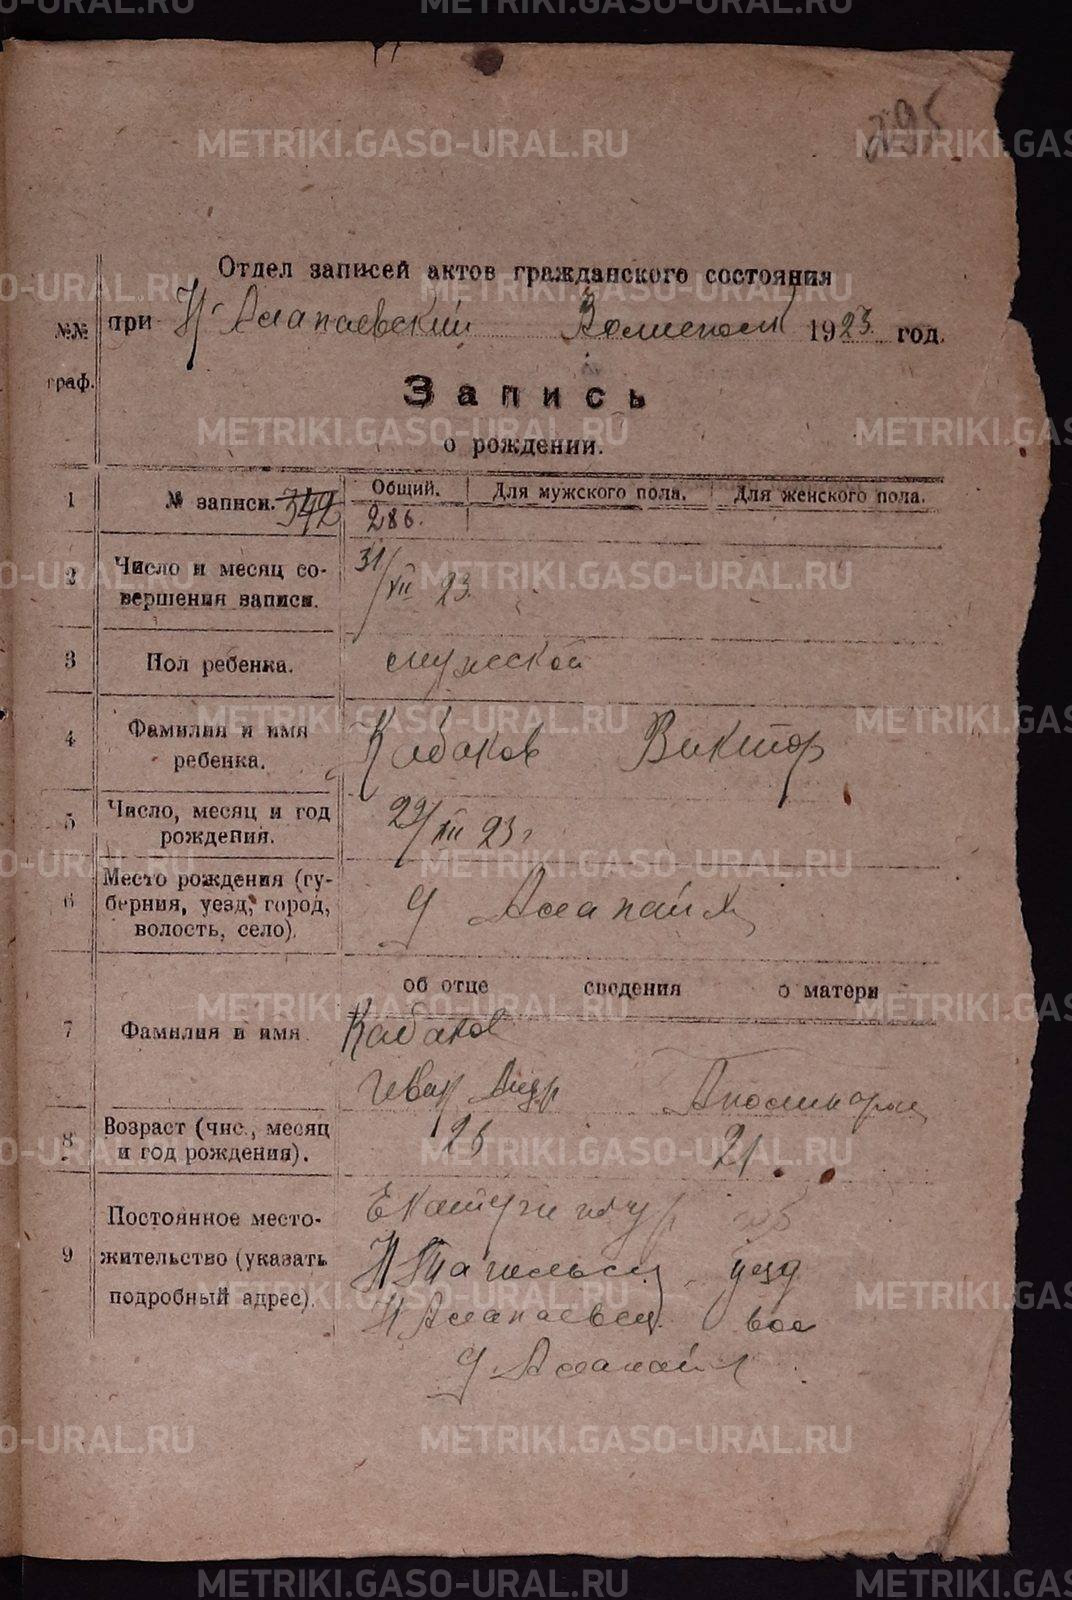 295
Отдел записей актов гражданского состояния
при Н Алапаевский Волисполк 1923 год.
№№ граф.
Запись
о рождении.
1 № записи. 342 Общий. Для мужского пола. Для женского пола.
286.
2 Число и месяц со-
вершения записи. 31/XII 23.
3 Пол ребенка. мужской
4 Фамилия и имя
ребенка. Кабаков Виктор
5 Число, месяц и год
рождения. 29/XII 23 г
6 Место рождения (гу-
берния, уезд, город,
волость, село). д Алапаиха
об отце сведения о матери
7 Фамилия и имя Кабаков
Иван Андр
8 Возраст (чис., месяц
и год рождения). 25 21
9 Постоянное место-
жительство (указать
подробный адрес).
Н Тагильск уезд
Н Алапаевск вол
METRIKI.GASO-URAL.RU